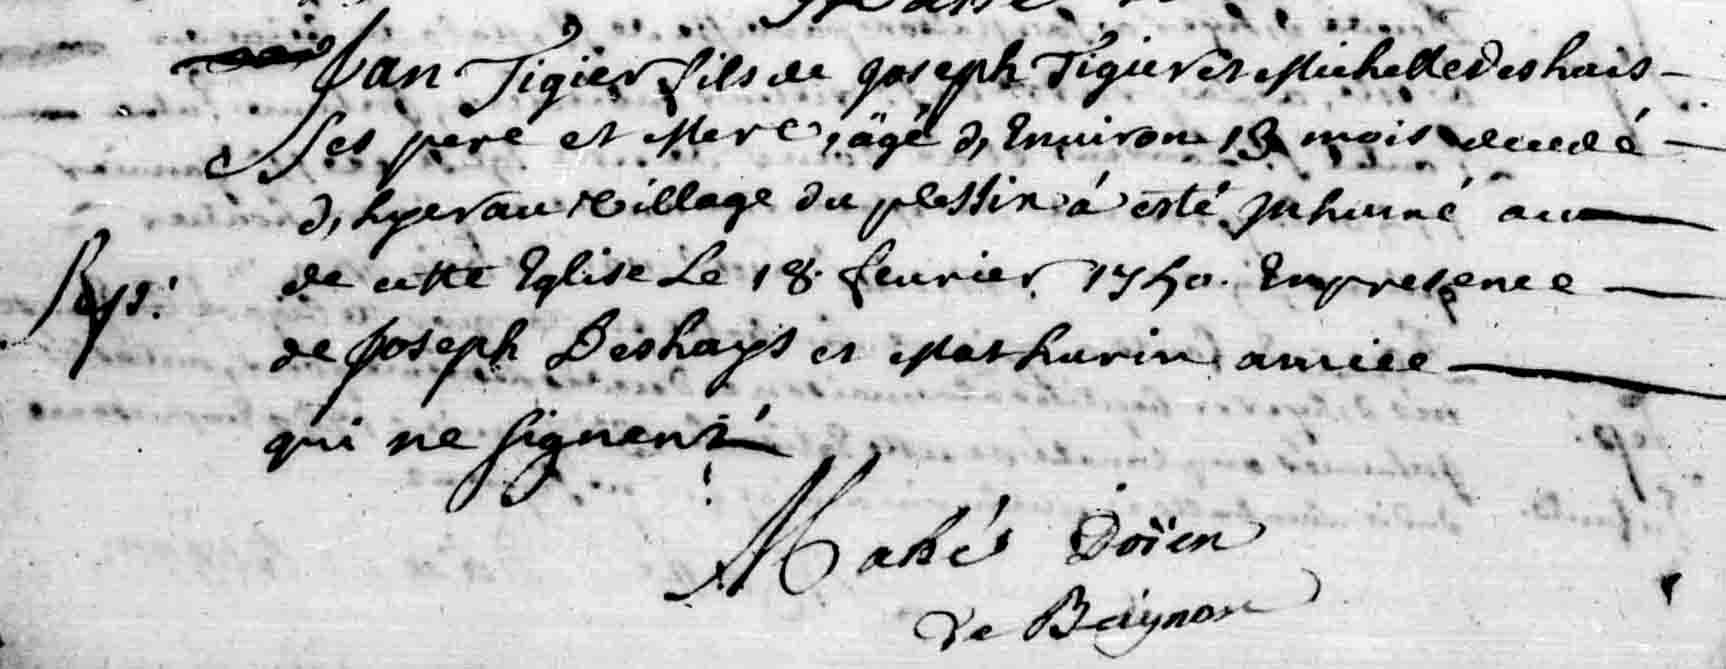 Jan Tigier fils de Joseph Tigier et Michelle deshais
Ses pere et Mere, âgé d, Environ 18 mois decedé
d, hyer au Village du plessix à esté Inhumé au
de cette Eglise Le 18. fevrier 1750. En presence
de Joseph Deshays et Mathurin amice
qui ne signent
Mahés Doïen
de Beignon